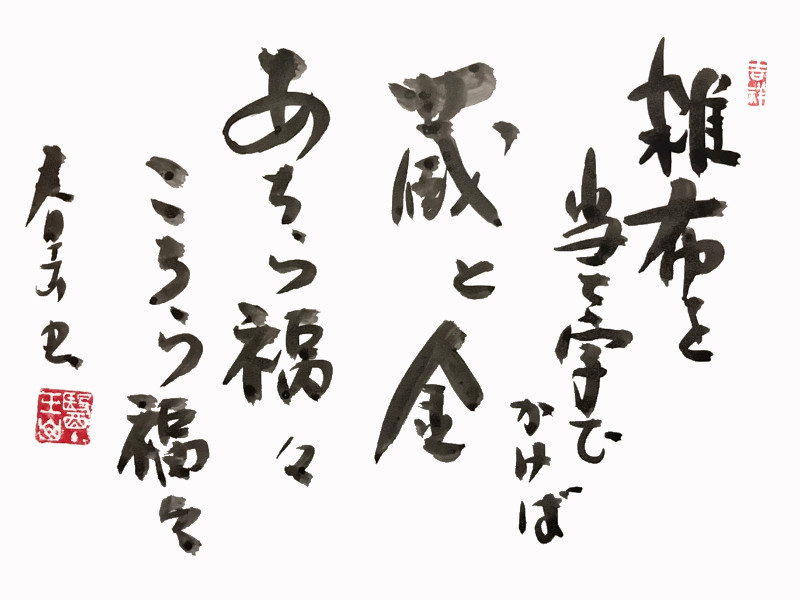 吉祥
雑布を
当て字で
かけば
蔵と金
あちら福々
こちら福々
春